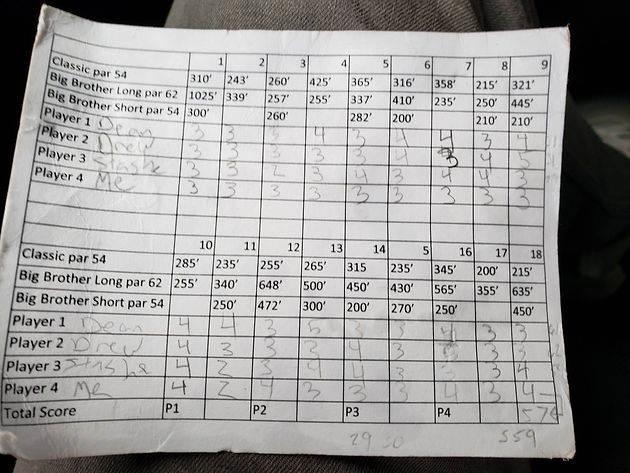 1 2 3 4 5 6 7 8 9
Classic par 54 310' 243' 260' 425' 365' 316' 358' 215' 321'
Big Brother Long par 62 1025' 339' 257' 255' 337' 410' 235' 250' 445'
Big Brother Short par 54 300' 260' 282' 200' 210' 210'
Player 1 Dean 3 3 3 4 3 4 4 3 4
Player 2 Drew 3 3 3 3 3 4 3 4 5
Player 3 3 3 2 3 4 3 4 4 3
Player 4 Me 3 3 3 3 3 3 3 3 3
10 11 12 13 14 5 16 17 18
Classic par 54 285' 235' 255' 265' 315 235' 345' 200' 215'
Big Brother Long par 62 255' 340' 648' 500' 450' 430' 565' 355' 635'
Big Brother Short par 54 250' 472' 300' 200' 270' 250' 450'
Player 1 Dean 4 4 3 5 3 3 4 3 3
Player 2 Drew 4 3 3 3 4 3 3 3
Player 3 4 2 3 4 4 3 3 3 4
Player 4 Me 4 2 4 3 3 3 4 3 4
Total Score P1 P2 P3 P4
29